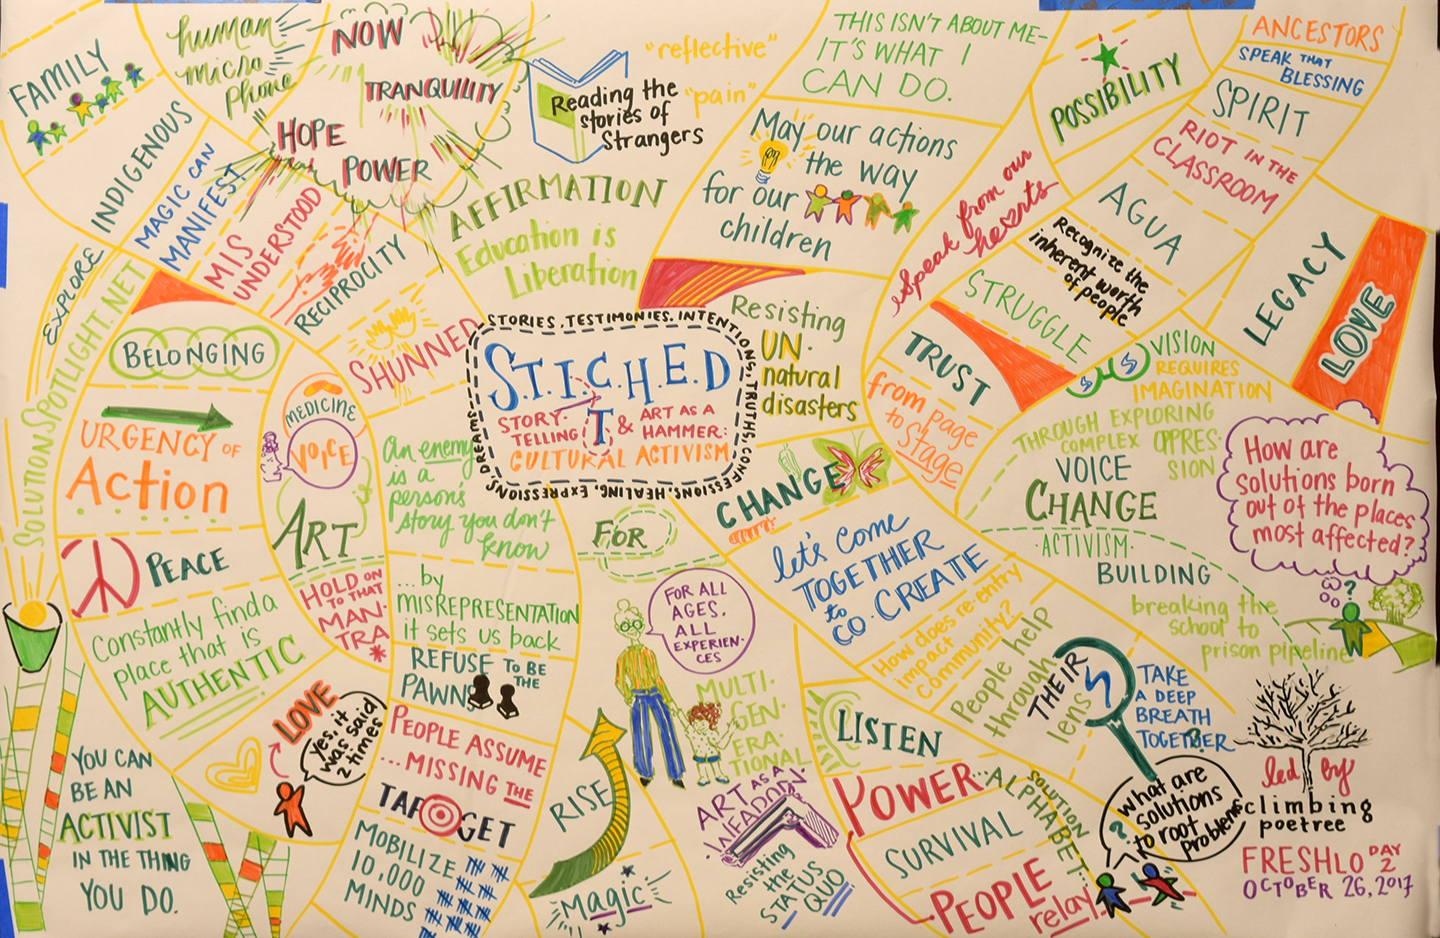 FAMILY
human
micro
phone
NOW
TRANQUILITY
HOPE
POWER
INDIGENOUS
MAGIC CAN
MANIFEST
MIS
UNDERSTOOD
RECIPROCITY
SHUNNED
EXPLORE
SOLUTIONSSPOTLIGHT.NET
Reading the
stories of
Strangers
"reflective"
"pain"
AFFIRMATION
Education is
Liberation
THIS ISN'T ABOUT ME-
IT'S WHAT I
CAN DO.
May our actions
the way
for our
children
speak from our
hearts
POSSIBILITY
ANCESTORS
SPEAK THAT
BLESSING
SPIRIT
RIOT IN THE
CLASSROOM
AGUA
Recognize the
inherent worth
of people
STRUGGLE
TRUST
from page
to Stage
LEGACY
LOVE
STORIES, TESTIMONIES, INTENTIONS, TRUTHS, CONFESSIONS, HEALING, EXPRESSIONS, DREAMS
S.T.I.C.H.E.D
T
STORY-
TELLING
&
ART AS A
HAMMER:
CULTURAL ACTIVISM
Resisting
UN-
natural
disasters
CHANGE
BELONGING
URGENCY OF
Action
PEACE
Constantly find a
place that is
AUTHENTIC
MEDICINE
VOICE
ART
HOLD ON
TO THAT
MAN-
TRA*
An enemy
is a
person's
story you don't
know
...by
MISREPRESENTATION
it sets us back
REFUSE TO BE
THE
PAWNS
PEOPLE ASSUME
...MISSING THE
TARGET
MOBILIZE
10,000
MINDS
LOVE
Yes, it
was said
2 times
YOU CAN
BE AN
ACTIVIST
IN THE THING
YOU DO.
FOR
FOR ALL
AGES,
ALL
EXPERIEN-
CES
MULTI-
GEN-
ERA-
TIONAL
RISE
Magic
ART AS A
WEAPON
Resisting
the
STATUS
QUO
let's come
TOGETHER
to
CO-CREATE
How does re-entry
impact
community?
People help
through
THEIR
lens
LISTEN
POWER
SURVIVAL
PEOPLE
relay
SOLUTION
ALPHABET
VISION
REQUIRES
IMAGINATION
THROUGH EXPLORING
COMPLEX OPPRES-
SION
VOICE
CHANGE
ACTIVISM
BUILDING
breaking the
school to
prison pipeline
How are
solutions born
out of the places
most affected?
?
TAKE
A DEEP
BREATH
TOGETHER
what are
solutions
to root
problems
?
led by
climbing
poetree
FRESHLO DAY
2
OCTOBER 26, 2017